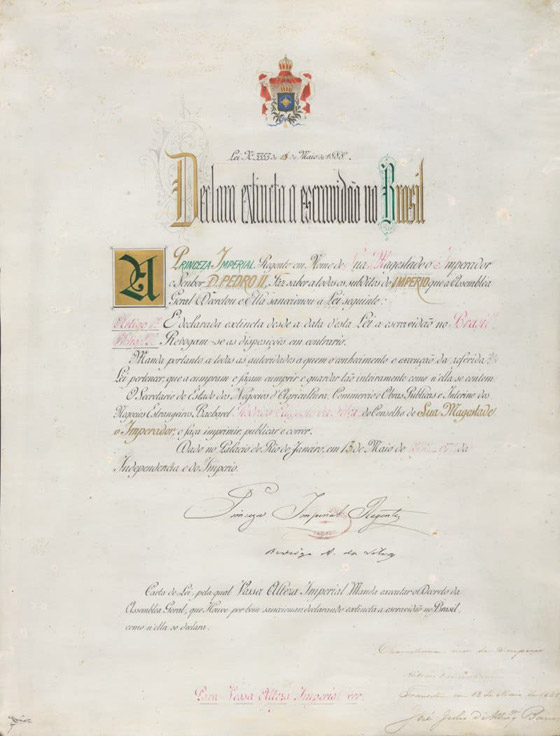 Lei Nº 3353 de 13 de Maio de 1888.
Declara extincta a escravidão no Brasil
A PRINCEZA IMPERIAL Regente em Nome de Sua Magestade o Imperador
o Senhor D. PEDRO II, Faz saber a todos os subditos do IMPERIO que a Assembléa
Geral Decretou e Ella sanccionou a Lei seguinte:
Artigo 1º É declarada extincta desde a data d'esta Lei a escravidão no Brasil.
Artigo 2º Revogam-se as disposições em contrario.
Manda portanto a todas as autoridades a quem o conhecimento e execução da referida
Lei pertencer, que a cumpram e façam cumprir e guardar tão inteiramente como n'ella se contem.
O Secretario de Estado dos Negocios d'Agricultura, Commercio e Obras Publicas e Interino dos
Negocios Estrangeiros, Bacharel Rodrigo Augusto da Silva, do Conselho de Sua Magestade
o Imperador, o faça imprimir, publicar e correr.
Dado no Palacio do Rio de Janeiro, em 13 de Maio de da
Independencia e do Imperio.
Princeza Imperial Regente
Rodrigo A. da Silva
Carta de Lei, pela qual Vossa Alteza Imperial Manda executar o Decreto da
Assembléa Geral, que Houve por bem sanccionar, declarando extincta a escravidão no Brasil,
como n'ella se declara.
Para Vossa Alteza Imperial ver.
Chancellaria-mór do Imperio
Transitou em 13 de Maio de 1888
José Julio d'Albuqº Barros